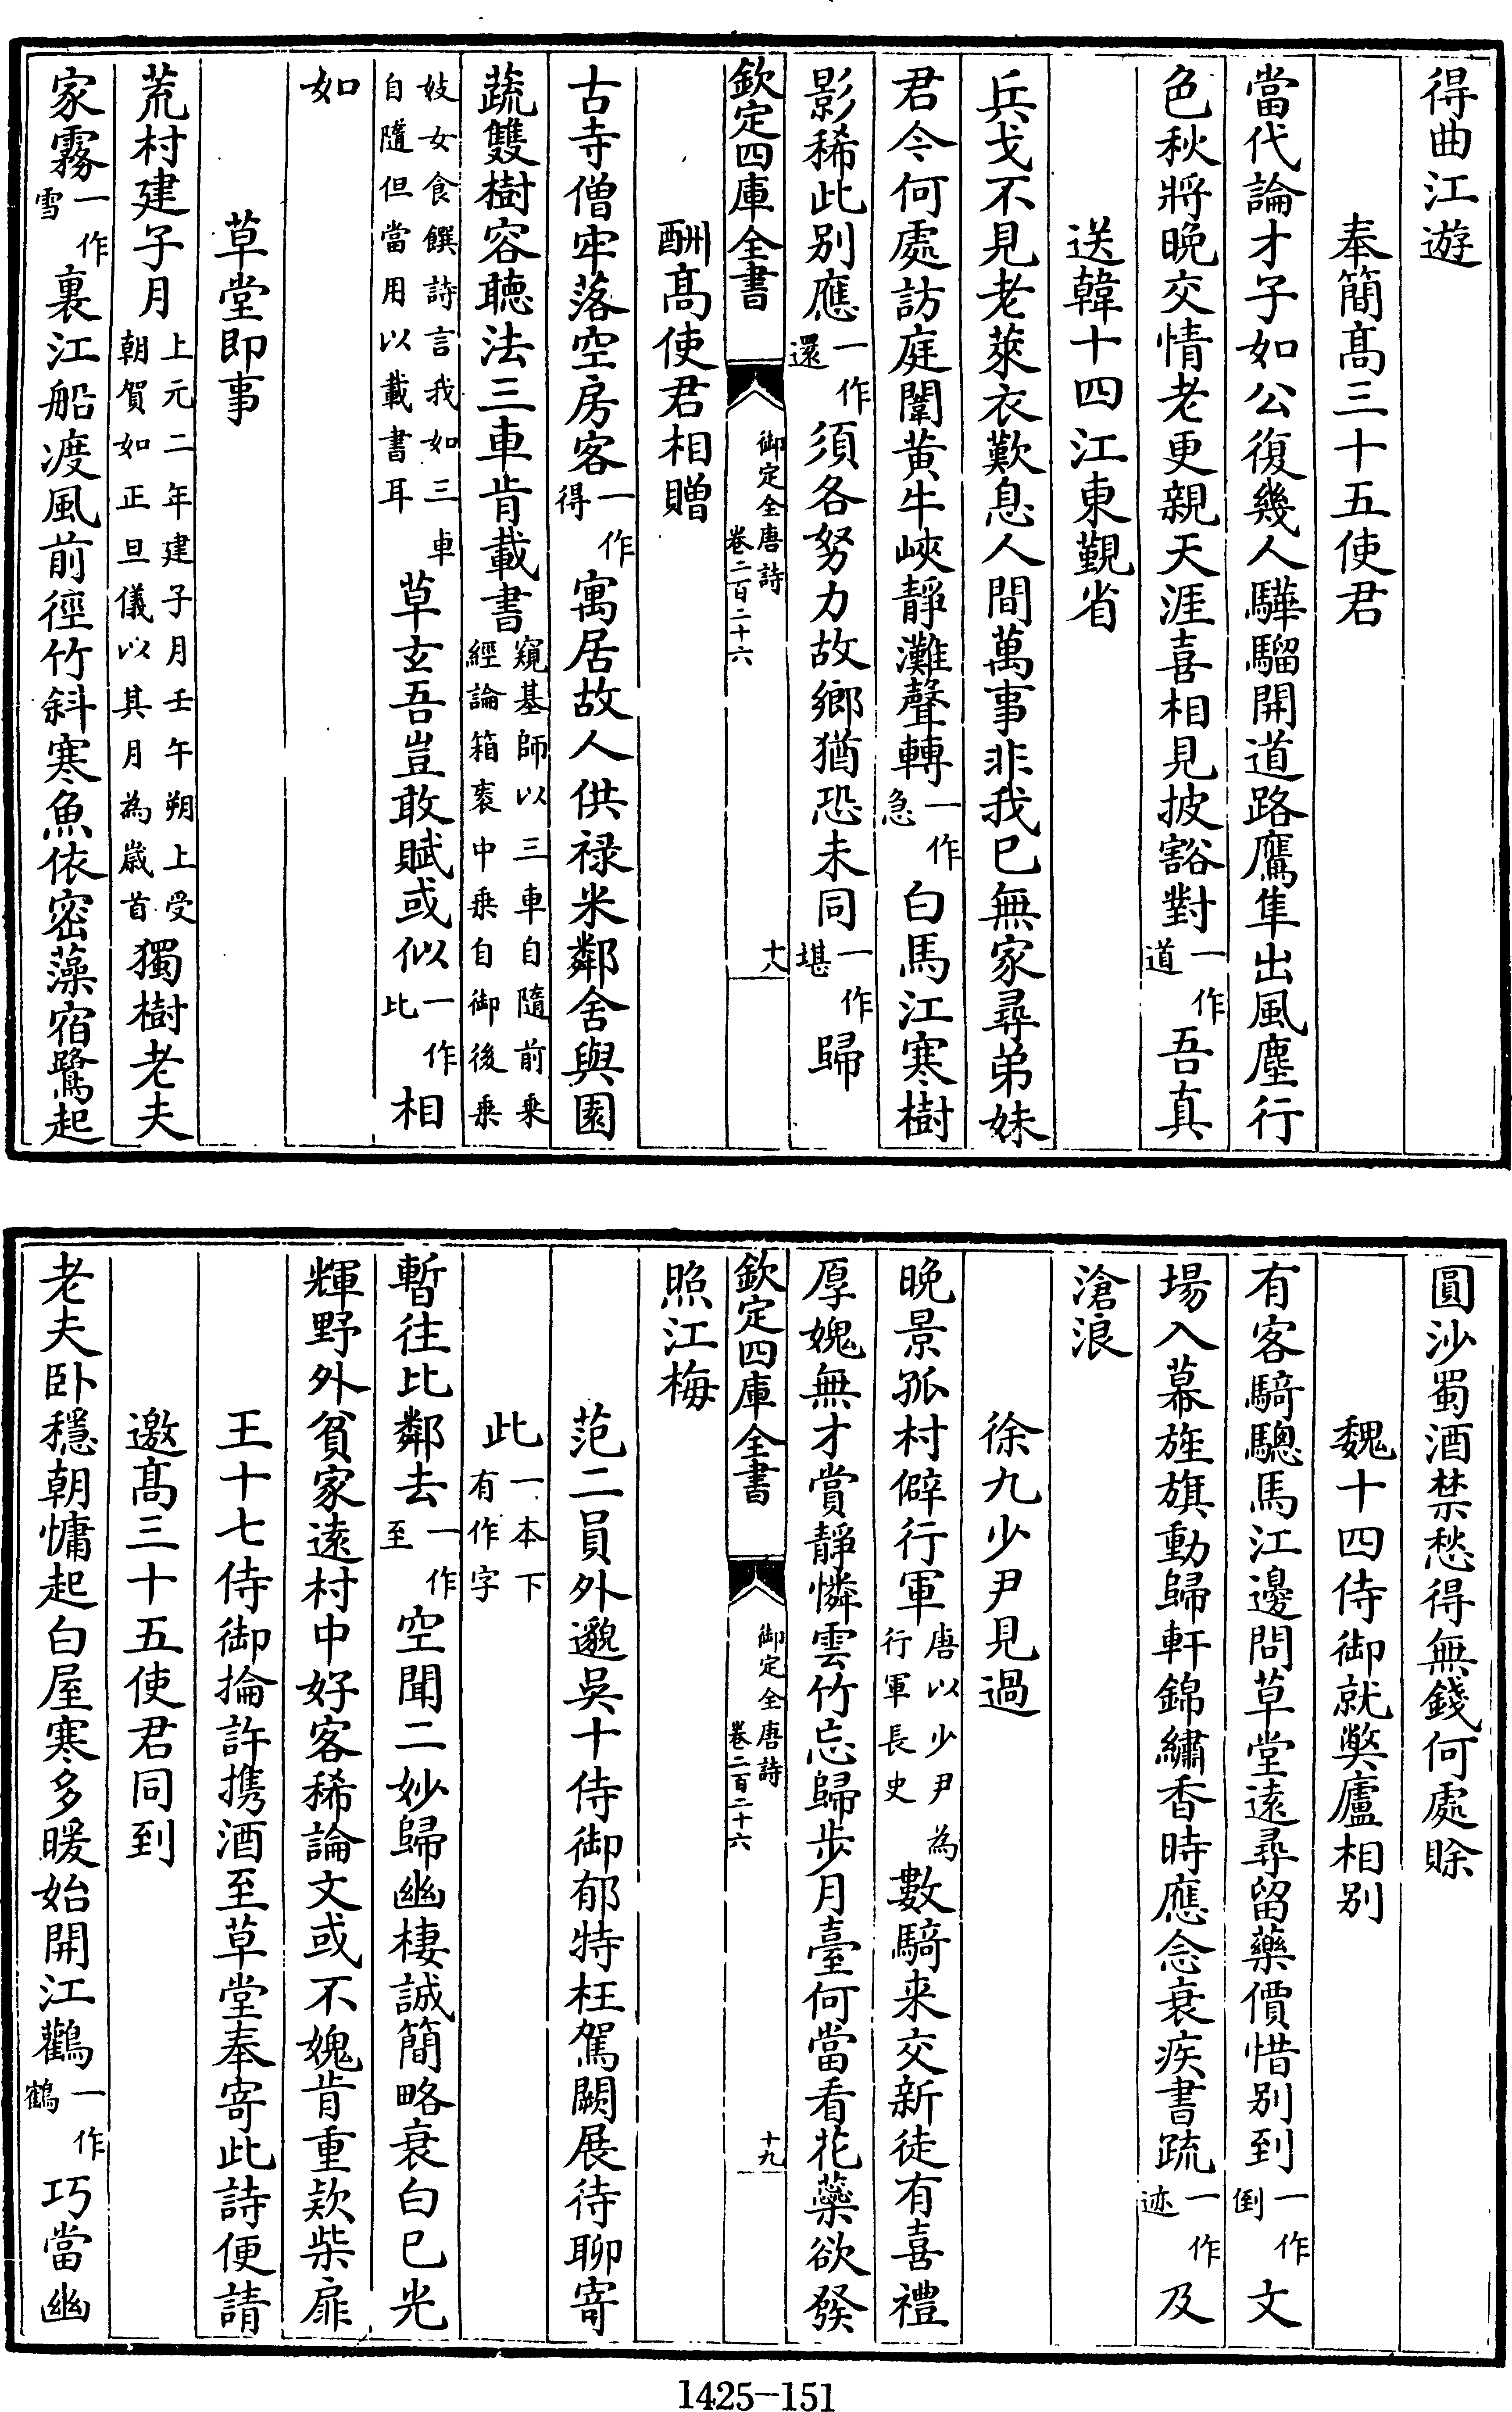 得曲江遊
奉簡髙三十五使君
當代論才子如公復幾人驊騮開道路鷹隼出風塵行
色秋將晚交情老更親天涯喜相見披豁對一作道吾真
送韓十四江東覲省
兵戈不見老萊衣歎息人間萬事非我已無家尋弟妹
君今何處訪庭闈黃牛峽靜灘聲轉一作急白馬江寒樹
影稀此別應一作還須各努力故鄉猶恐未同一作堪歸
欽定四庫全書
御定全唐詩
卷二百二十六
十八
酬髙使君相贈
古寺僧牢落空房客一作得寓居故人供禄米鄰舍與園
蔬雙樹容聽法三車肯載書窺基師以三車自隨前乘經論箱袠中乘自御後乘
妓女食饌詩言我如三車自隨但當用以載書耳草玄吾豈敢賦或似一作比相
如
草堂即事
荒村建子月上元二年建子月壬午朔上受朝賀如正旦儀以其月為嵗首獨樹老夫
家霧一作雪裏江船渡風前徑竹斜寒魚依密藻宿鷺起
圓沙蜀酒禁愁得無錢何處賒
魏十四侍御就弊廬相別
有客騎驄馬江邊問草堂遠尋留藥價惜別到一作倒文
場入幕旌旗動歸軒錦繡香時應念衰疾書疏一作迹及
滄浪
徐九少尹見過
晚景孤村僻行軍唐以少尹為行軍長史數騎来交新徒有喜禮
厚媿無才賞靜憐雲竹忘歸步月臺何當看花蘂欲發
欽定四庫全書
御定全唐詩
卷二百二十六
十九
照江梅
范二員外邈吳十侍御郁特枉駕闕展待聊寄
此一本下有作字
暫往比鄰去一作至空聞二妙歸幽棲誠簡略衰白已光
輝野外貧家遠村中好客稀論文或不媿肯重款柴扉
王十七侍御掄許携酒至草堂奉寄此詩便請
邀髙三十五使君同到
老夫卧穩朝慵起白屋寒多暖始開江鸛一作鶴巧當幽
1425-151